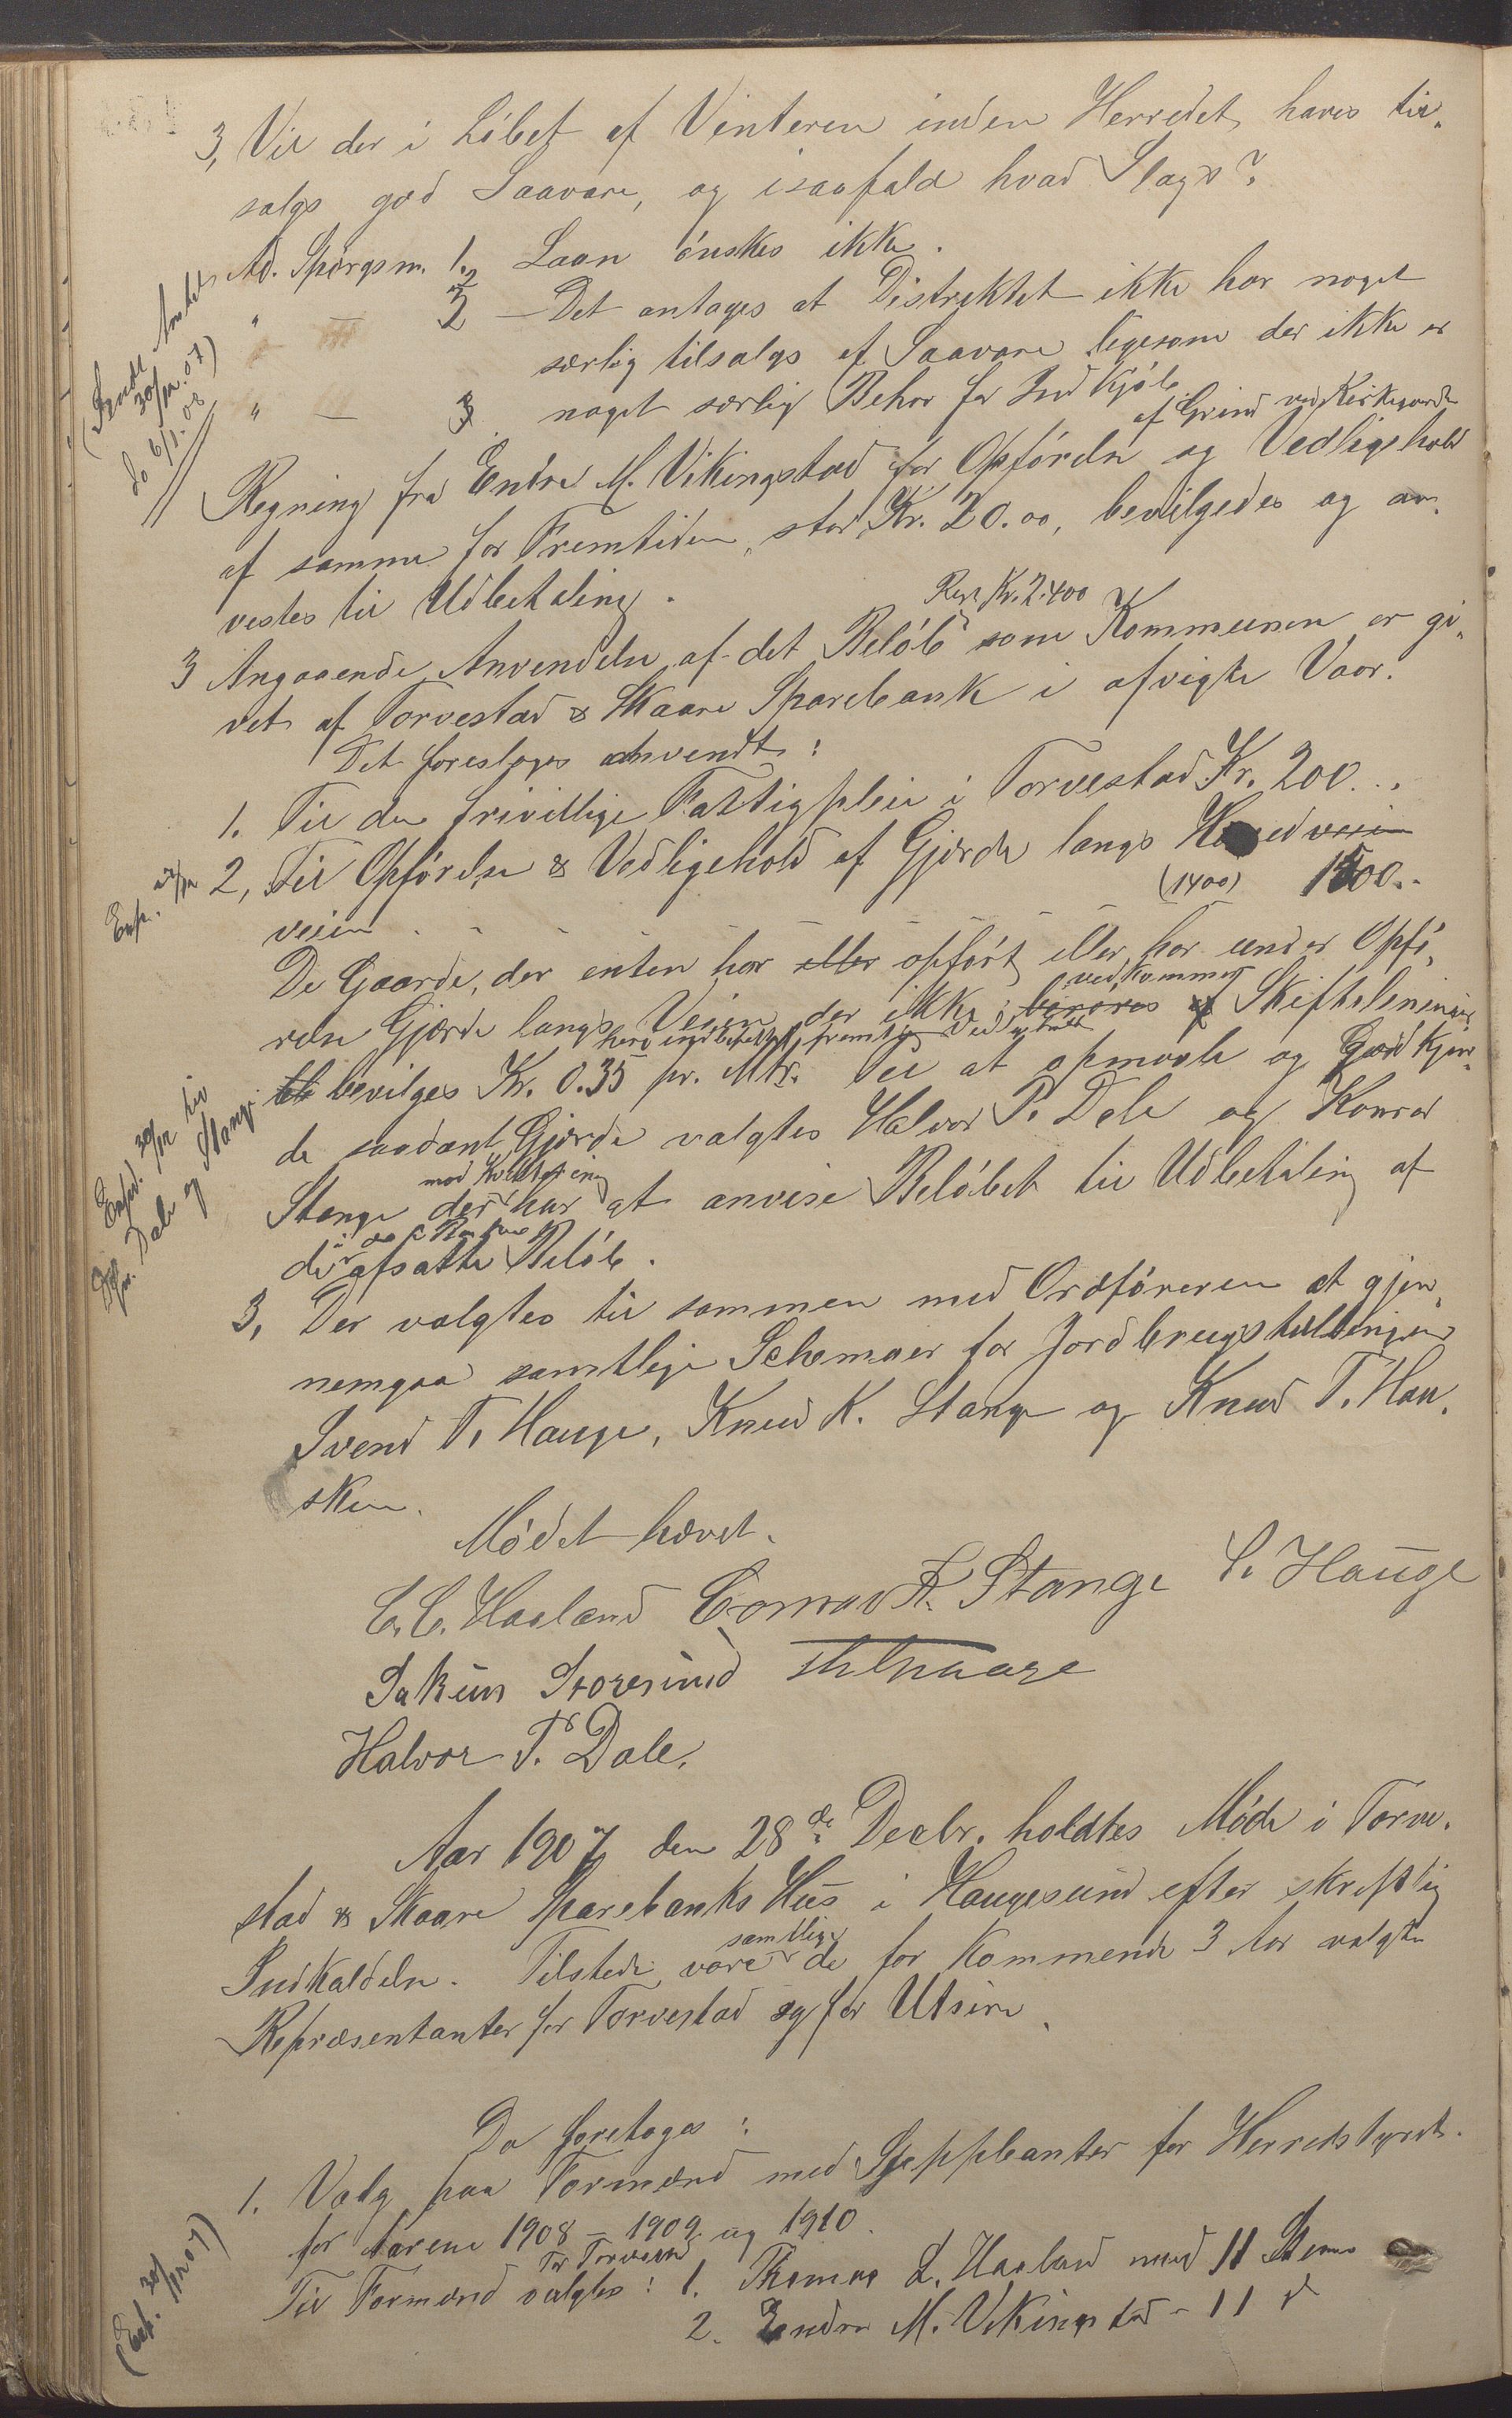 3, Vil der i Löbet af Vinteren inden Herredet haves til„
salgs god Saavare, og isaafald hvad Slags?
Ad. Spörgsm. 1. Laan önskes ikke.
" — 2 — Det antages at Distriktet ikke har noget
særlig tilsalgs af Saavare ligesom der ikke er
" — 3 noget særlig Behov for Indkjöb
(Sendt Amtet
30/12.07)
do 6/1.08
af Grind ved Kirkegaarde
Regning fra Endre M. Vikingstad for Opförelse og Vedligehold
af samme for Fremtiden, stor Kr. 20.00, bevilgedes og an„
vestes til Udbetaling.
Rest Kr. 2.400
3 Angaaende Anvendelse af det Belöb som Kommunen er gi„
vet af Torvestad & Skaare Sparebank i afvigte Vaar.
Det foreslages anvendt:
1. Til den frivillige Fattigpleie i Torvestad Kr. 200..
Exp.
2, Til Opförelse & Vedligehold af Gjærde langs Hovedveien
veien - - - - (1400) 1500..
De Gaarde, der enten har eller opfört eller har under Opfö„
vedkommer
relse Gjærde langs Veien der ikke berores af Skifteleninger
bevilges Kr. 0.35 pr. Mtr. Til at opmaale og Godkjen„
Expd. 30/12 til
Hr. Dale og Stange
de saadant Gjærde valgtes Halvor P. Dale og Konrad
mod Kvittering
Stange der har at anvise Belöbet til Udbetaling af
de afsatte Belöb.
3, Der valgtes til sammen med Ordföreren at gjen„
nemgaa samtlige Schemaer for Jordbrugstællingen
Svend T. Hauge, Knud K. Stange og Knud T. Hau„
sken.
Mödet hævet.
C. C. Haaland Conrad K. Stange S. Hauge
Sakün Storesünd
Halvor P. Dale.
Aar 1907 den 28de Decbr. holdtes Möde i Torve„
stad & Skaare Sparebanks Hus i Haugesund efter skriftlig
samtlige
Indkaldelse. Tilstede vare de for Kommende 3 Aar valgte
Repræsentanter for Torvestad og for Utsire.
Da foretoges:
1. Valg paa Formænd med Suppleanter for Herredstyret
for Aarene 1908 – 1909 og 1910.
(Exp. 30/12 07)
for Torvestad
Til Formænd valgtes: 1. Thomas L. Haaland med 11 Stemr
2. Endre M. Vikingstad - 11 "